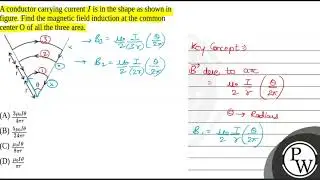 A conductor carrying current I is in the shape as shown in
figure. Find the magnetic field induction at the common
center O of all the three area.
③
②
①
→ B₃ = μ₀/2 I/(3r) (θ/2π)
→ B₂ = μ₀/2 I/(2r) (θ/2π)
(A) 5μ₀Iθ/4πr
(B) 5μ₀Iθ/24πr
Key Concept:
B due to arc
= μ₀/2 I/r (θ/2π)
θ → Radians
B₁ = μ₀/2 I/r (θ/2π)
P
W